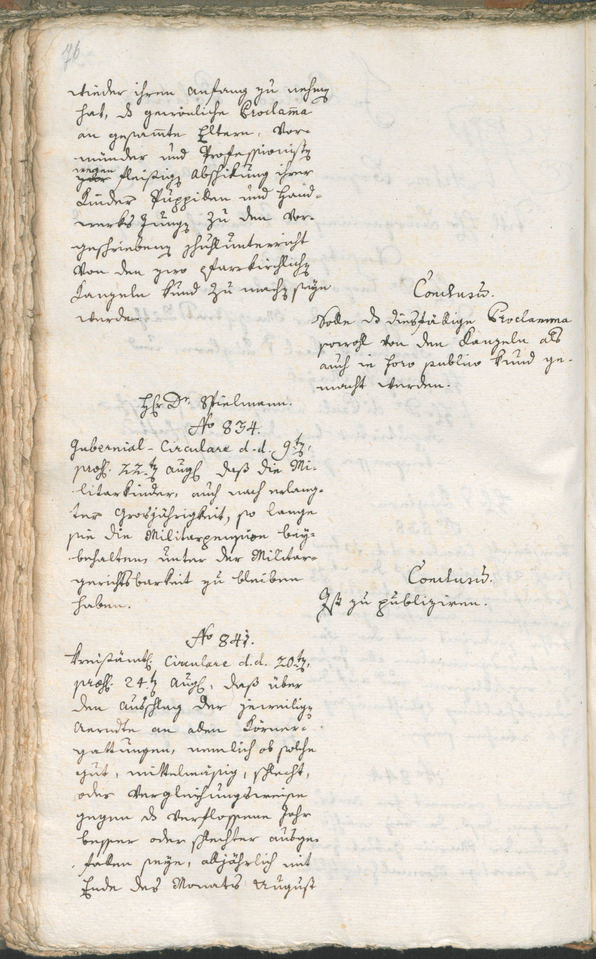 76
wieder ihren anfang zu nehmen
hat, d gewönliche Proclama
an gesammte Eltern, Vor-
münder und Professionisten
wegen fleißiger abschikung ihrer
Kinder Puppillen und Hand-
werks Jungen zu den vor-
geschriebenen schulunterricht
von den zwo pfarrkirchlichen
Canzeln kund zu machen seye
werde.
Conclusum.
Solle d diesfällige Proclamma
sowohl von den Kanzeln als
auch in foro publico kund ge-
macht werden.
H. Dr. Spielmann.
No 834.
Gubernial-Circulare d. d. 9ten,
præs. 22ten Aug. daß die Mi-
litarkinder, auch nach erlang-
ter Grosjährigkeit, so lange
sie die Militarpension bey-
behalten, unter der Militar-
gerichtsbarkeit zu bleiben
haben.
Conclusum.
Ist zu publiziren.
No 841.
Kreisämtl. Circulare d. d. 20ten,
præs. 24ten Aug. daß über
den ausschlag der jeweiligen
aerndte an allen Körner-
gattungen, nemlich ob solche
gut, mittelmäsig, schlecht,
oder vergleichungsweise
gegen d verflossene Jahr
besser oder schlechter ausge-
fallen seye, alljährlich mit
Ende des Monats August